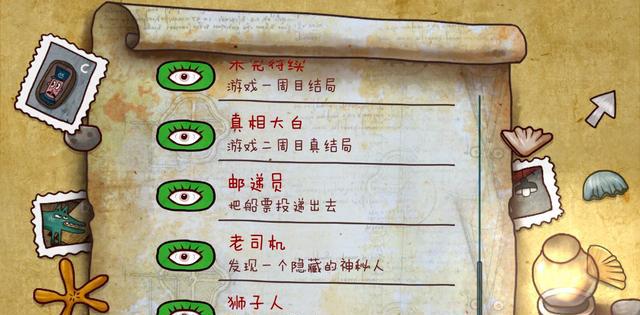 未完待续
游戏一周目结局
真相大白
游戏二周目真结局
邮递员
把船票投递出去
老司机
发现一个隐藏的神秘人
狮子人